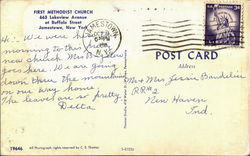 FIRST METHODIST CHURCH
663 Lakeview Avenue
at Buffalo Street
Jamestown, New York
JAMESTOWN
N.Y.
3¢
Hi. We were here
morning to this pretty
new church. Mrs
goes here. We are going
down thru the mountains
on our way home.
The leaves are so pretty.
Delta
POST CARD
Address
Mr & Mrs Jessie Bandelier
RR#2
New Haven
Ind.
79646
All Photographs rights reserved by C. E. Thomas